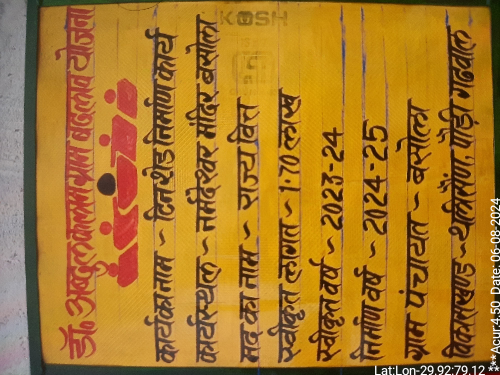 डॉ० अब्दुल कलाम ग्राम बदलाव योजना
कार्य का नाम ~ टिन शेड निर्माण कार्य
कार्यस्थल ~ नर्मदेश्वर मंदिर बसोला
मद का नाम ~ राज्य वित्त
स्वीकृत लागत ~ 1.70 लाख
स्वीकृत वर्ष ~ 2023-24
निर्माण वर्ष ~ 2024-25
ग्राम पंचायत ~ बसोला
विकासखण्ड ~ थलीसैंण, पौड़ी गढवाल
KOSH
Lat:Lon-29.92:79.12
***Acur:4.50 Date: 06-08-2024